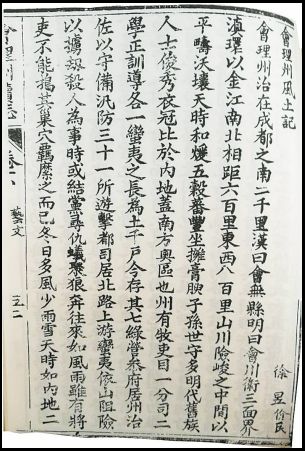 會理州風土記
徐昱俗民
會理州治在成都之南二千里漢曰會無縣明曰會川衛三面界
滇環以金江南北相距六百里東西八百里山川險峻之中間以
平疇沃壤天時和煖五穀蕃豐坐擁膏腴子孫世守多明代舊族
人士俊秀衣冠比於內地蓋南方奧區也州有牧吏目一分司二
學正訓導各一蠻夷之長為土千戶今存其七綠營泰府居州治
佐以守備汛防三十一所遊擊都司居北路上游蠻夷依山阻險
以擄刼殺人為事時或結黨尋仇蟻聚狼奔往來如風雨雖有將
吏不能搗其巢穴羈縻之而已冬日多風少雨雪天時如內地二
會理州續志
卷二
藝文
五二